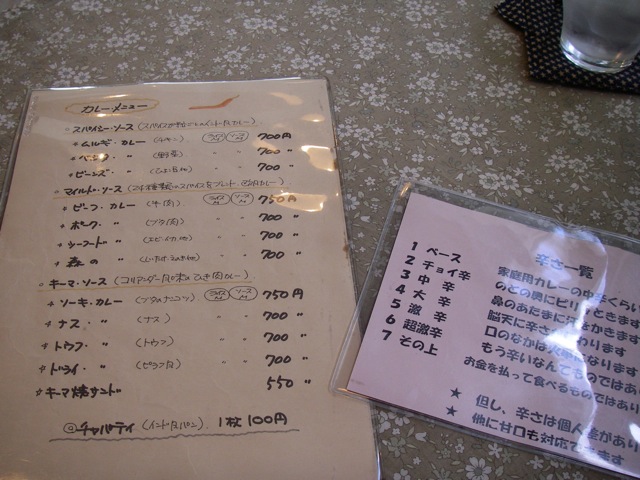 カレーメニュー
○スパイシーソース (スパイス
*ムルギーカレー (チキン) ライス付 ソース付 700円
〃 (野菜) 〃 〃 700 〃
*ビーンズ 〃 〃 〃 700 〃
○マイルド・ソース (24種類のスパイスをブレンド
*ビーフ・カレー (牛肉) ライス付 ソース付 750円
*ポーク・〃 (ブタ肉) 〃 〃 700 〃
*シーフード 〃 (エビ・イカ 〃 〃 700 〃
*森の 〃 〃 〃 700 〃
○キーマ・ソース (コリアンダー風味のひき肉カレー)
*ソーキ・カレー (ブタのナンコツ) ライス付 ソース付 750円
*ナス・〃 (ナス) 〃 〃 700 〃
*トウフ・〃 (トウフ) 〃 〃 700 〃
*ドライ・〃 〃 〃 700 〃
*キーマ焼サンド 550 〃
◎チャパティ (インド風パン) 1枚 100円
辛さ一覧
1 ベース 家庭用カレーの中辛くらい
2 チョイ辛 のどの奥にピリッときます
3 中 辛 鼻のあたまに汗をかきます
4 大 辛 脳天に辛さが
5 激 辛 口のなかは なります
6 超激辛 もう辛いなんてものではあ
7 その上 お金を払って食べるものではあり
★ 但し、辛さは個人差があり
★ 他に甘口も対応できます